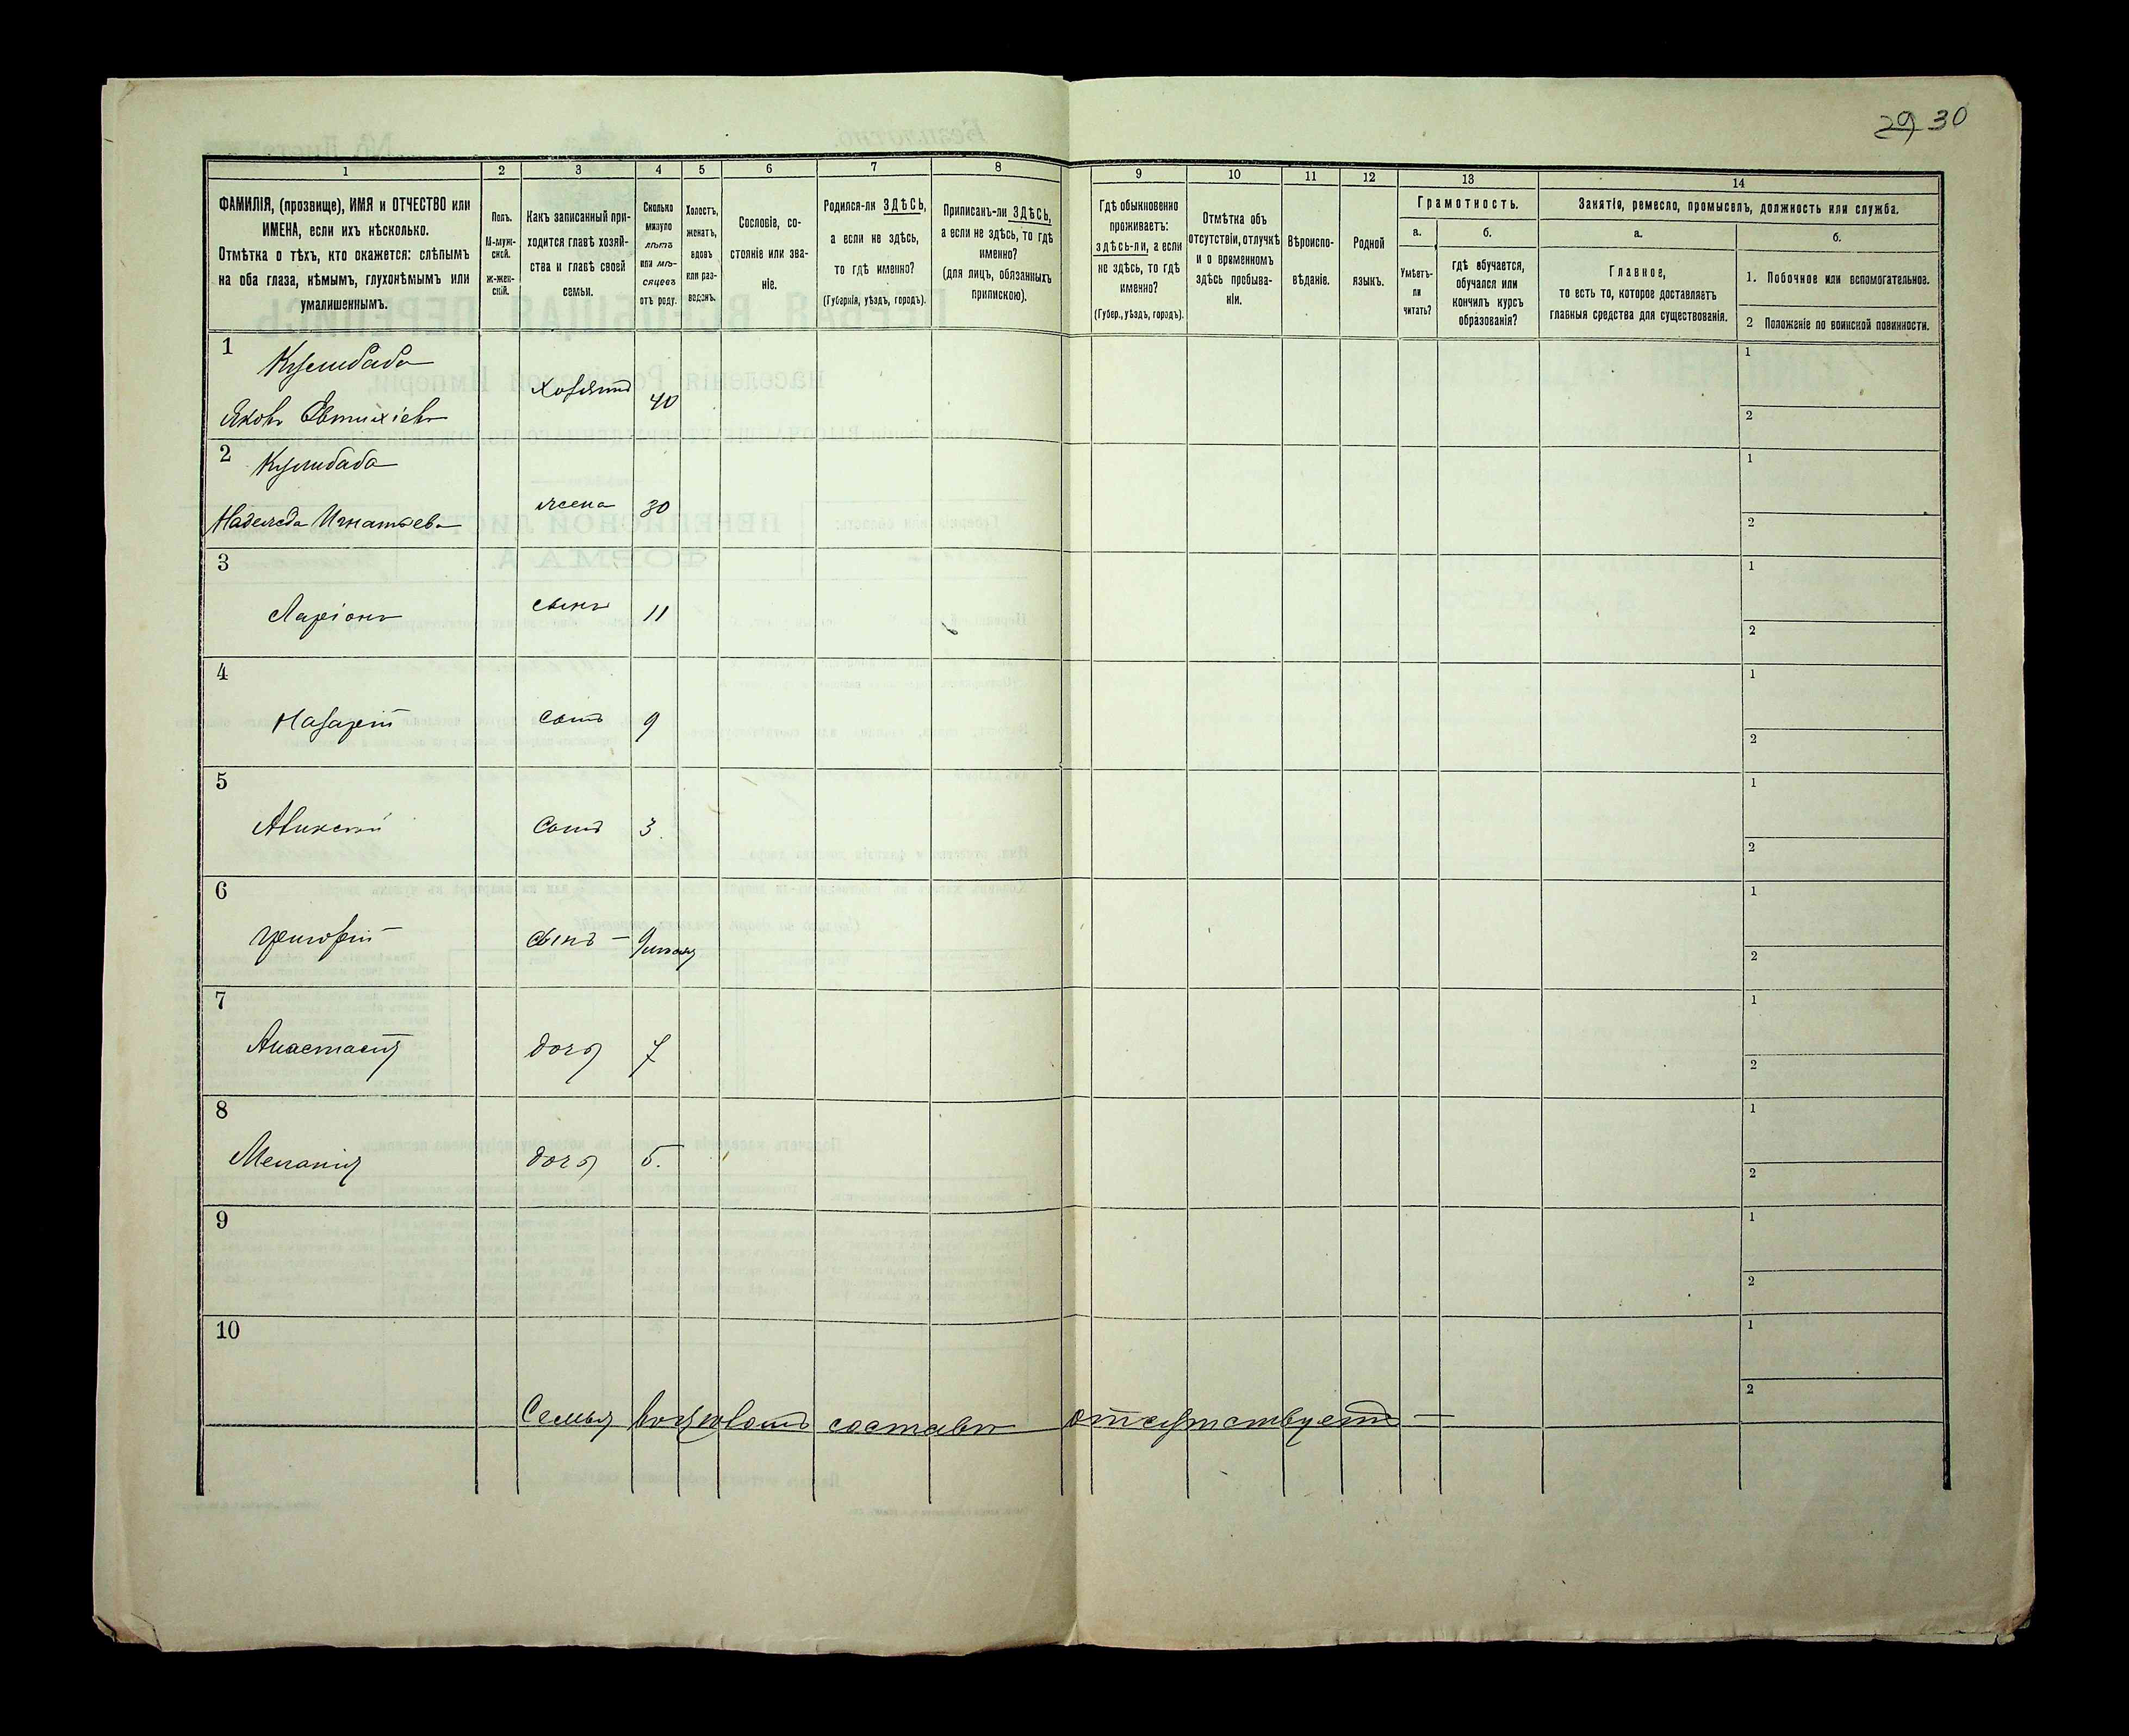 29 30
1 2 3 4 5 6 7 8 9 10 11 12 13 14
ФАМИЛІЯ, (прозвище), ИМЯ и ОТЧЕСТВО или
ИМЕНА, если ихъ нѣсколько.
Отмѣтка о тѣхъ, кто окажется: слѣпымъ
на оба глаза, нѣмымъ, глухонѣмымъ или
умалишеннымъ.
Полъ.
М-муж-
ской.
ж-жен-
скій.
Какъ записанный при-
ходится главѣ хозяй-
ства и главѣ своей
семьи.
Сколько
минуло
лѣтъ
или мѣ-
сяцевъ
отъ роду.
Холостъ,
женатъ,
вдовъ
или раз-
веденъ.
Сословіе, со-
стояніе или зва-
ніе.
Родился-ли ЗДѢСЬ,
а если не здѣсь,
то гдѣ именно?
(Губернія, уѣздъ, городъ).
Приписанъ-ли ЗДѢСЬ,
а если не здѣсь, то гдѣ
именно?
(для лицъ, обязанныхъ
припискою).
Гдѣ обыкновенно
проживаетъ:
здѣсь-ли, а если
не здѣсь, то гдѣ
именно?
(Губер., уѣздъ, городъ).
Отмѣтка объ
отсутствіи, отлучкѣ
и о временномъ
здѣсь пребыва-
ніи.
Вѣроиспо-
вѣданіе.
Родной
языкъ.
Грамотность.
а. б.
Умѣетъ-
ли
читать?
гдѣ обучается,
обучался или
кончилъ курсъ
образованія?
Занятіе, ремесло, промыселъ, должность или служба.
а. б.
Главное,
то есть то, которое доставляетъ
главныя средства для существованія.
1. Побочное или вспомогательное.
2 Положеніе по воинской повинности.
1 Кулибаба 1
Яковъ Евтихіевъ хозяинъ 40 2
2 Кулибаба 1
Надежда Игнатьева жена 30 2
3 1
Ларіонъ сынъ 11 2
4 1
Назарій сынъ 9 2
5 1
Алексѣй сынъ 3 2
6 1
Григорій сынъ 9 2
7 1
Анастасія дочь 7 2
8 1
Меланія дочь 5. 2
9 1
2
10 1
2
Семья составѣ отсутствуетъ